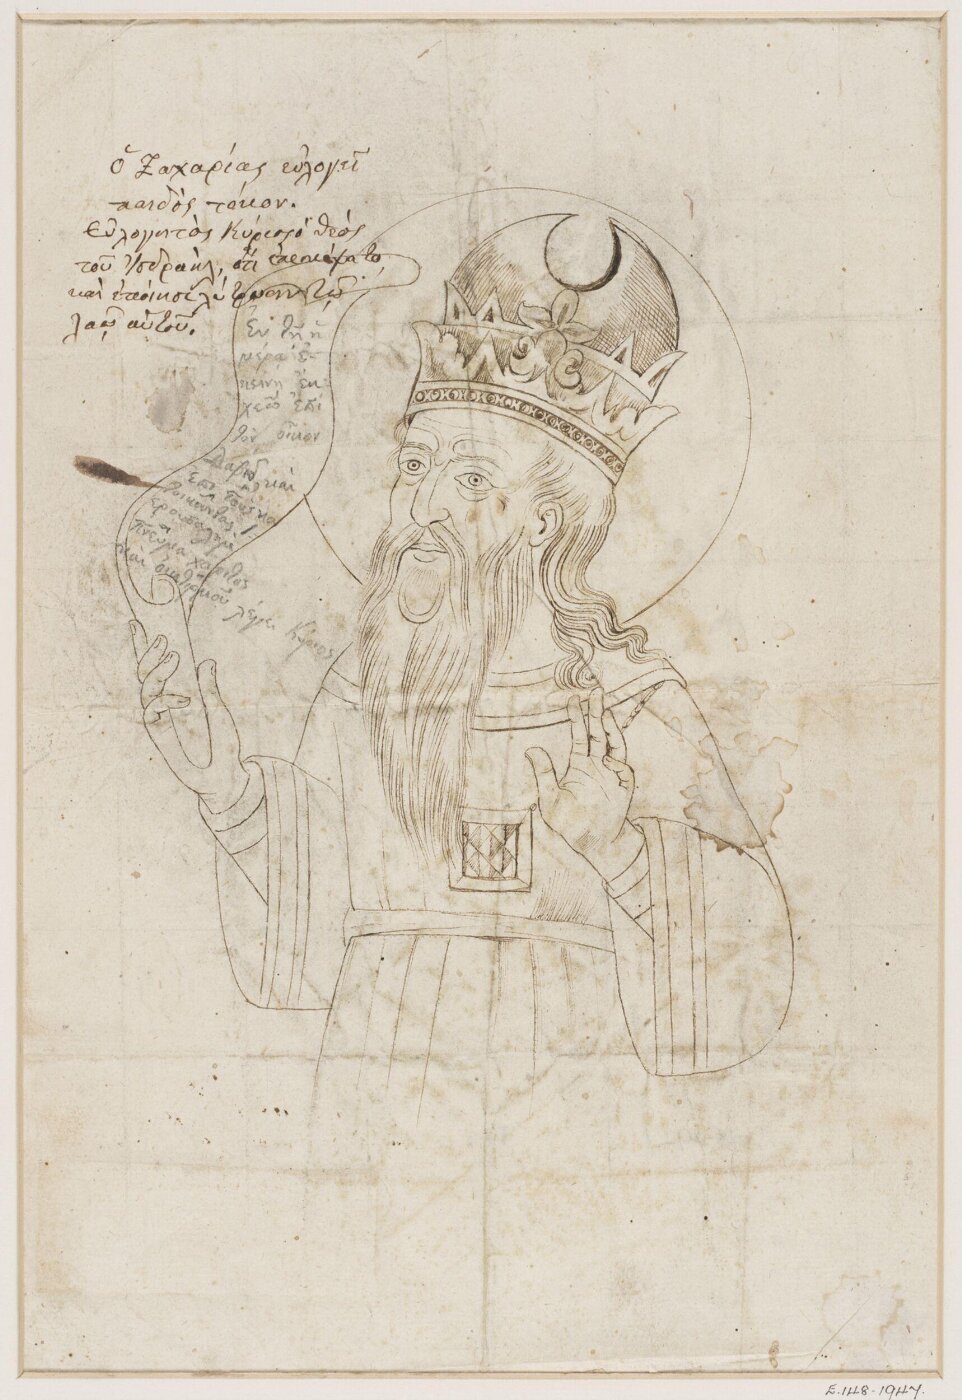 ὁ Ζαχαρίας εὐλογεῖ
παιδὸς τόκον.
Εὐλογητὸς Κύριος ὁ θεός
τοῦ Ἰσδραὴλ, ὅτι ἐπεσκέψατο
καὶ ἐποίησε λύτρωσιν τῷ
λαῷ αὐτοῦ.
Ἐν τῇ ἡ
μέρα ἐ-
κείνῃ ἐκ-
χεῶ ἐπὶ
τὸν οἶκον
Δαβὶδ καὶ
ἐπὶ τοὺς κα
τοικοῦντας
Ἱερουσαλὴμ
πνεῦμα χάριτος
καὶ οἰκτιρμοῦ λέγει Κύριος
E.148-1947.